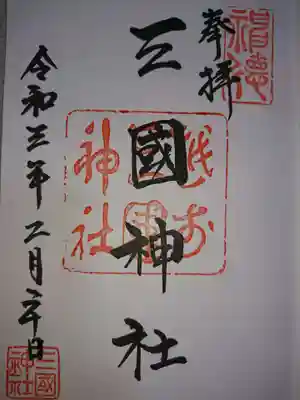 奉拝
三國神社
越前
神社
令和三年二月二十日
三國
神社